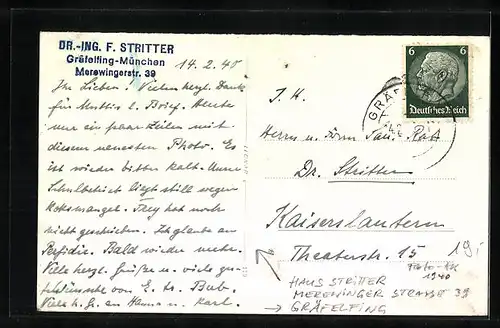 DR.-ING. F. STRITTER
Gräfelfing-München
Merowingerstr. 39
14.2.40
Ihr Lieben! Vielen herzl. Dank
für Muttis l. Brief. Heute
nur ein paar Zeilen mit
diesem neuesten Photo. Es
ist wieder bitter kalt. Unser
Schulbetrieb liegt still wegen
Koksmangel. They hat noch
nicht geschrieben. Ich glaube an
Perfidie. Bald wieder mehr.
Viele herzl. Grüße u. viele
von E. tr. Bub.
Viele h. Gr. an Hanna u. Karl.
6 6
Deutsches Reich
GRÄF
Herrn u. Frau San. Rat
Dr. Stritter
Kaiserslautern
Theaterstr. 15
1940
HAUS STRITTER
MEROWINGER STRASSE 39
→ GRÄFELFING